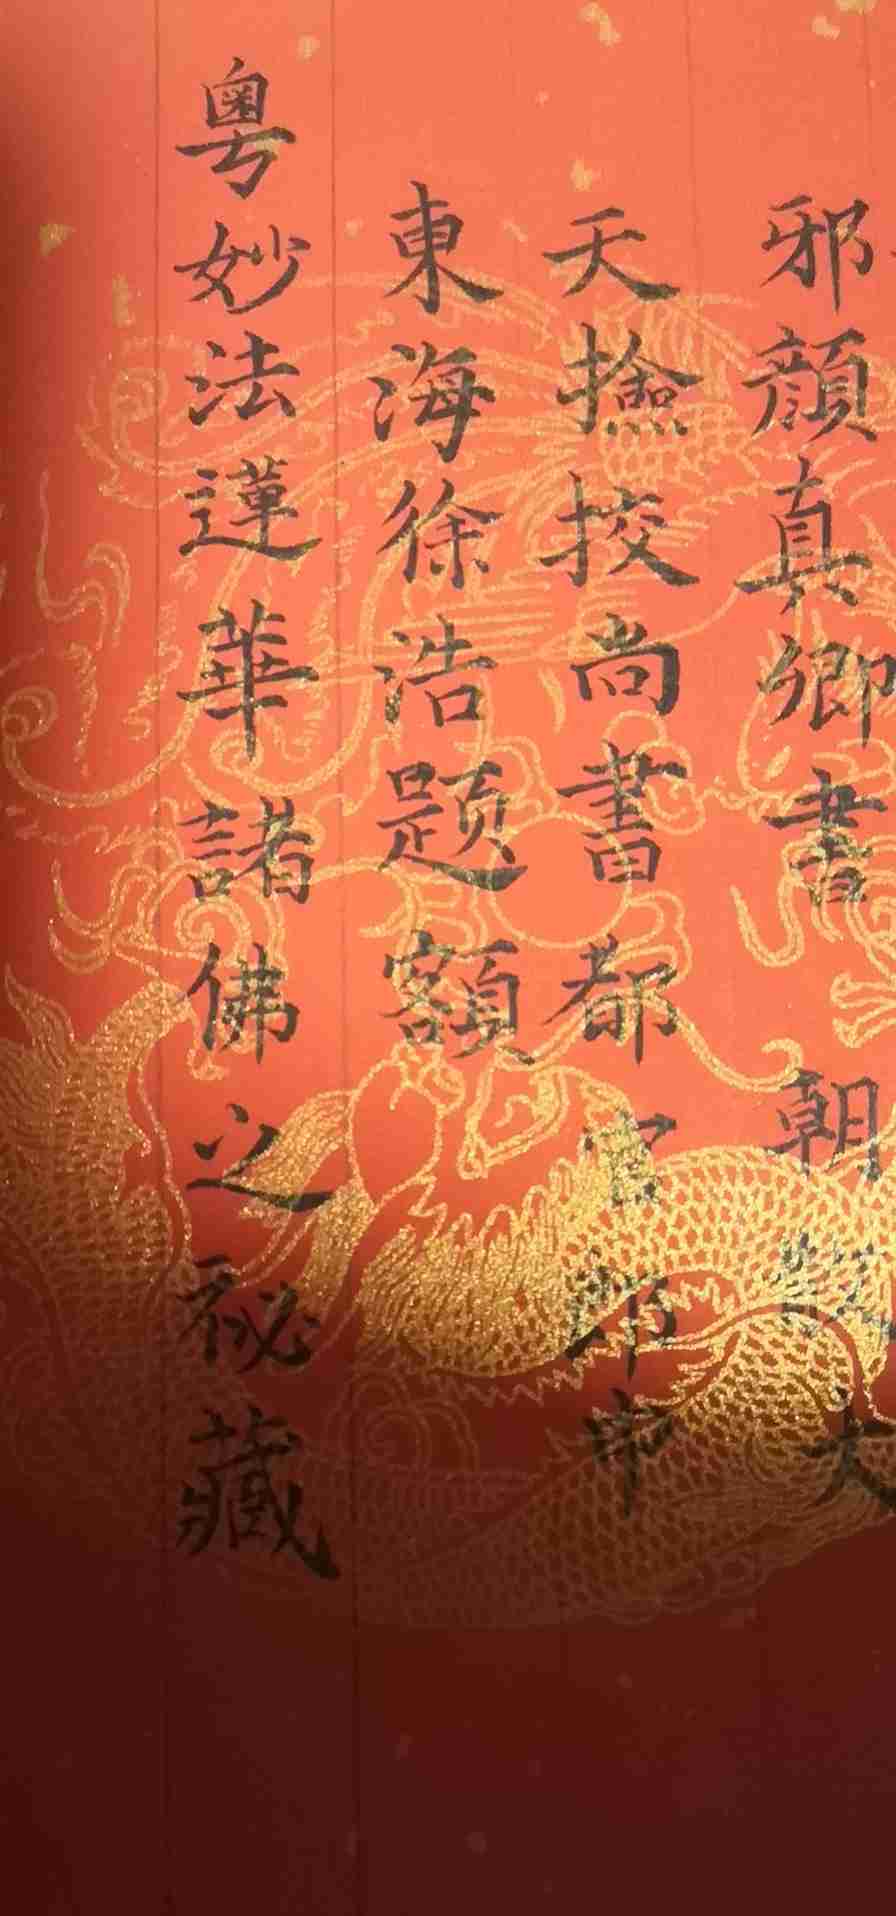 邪顔真卿書朝散大
夫撿挍尚書都官郎中
東海徐浩題額
粤妙法蓮華諸佛之祕藏